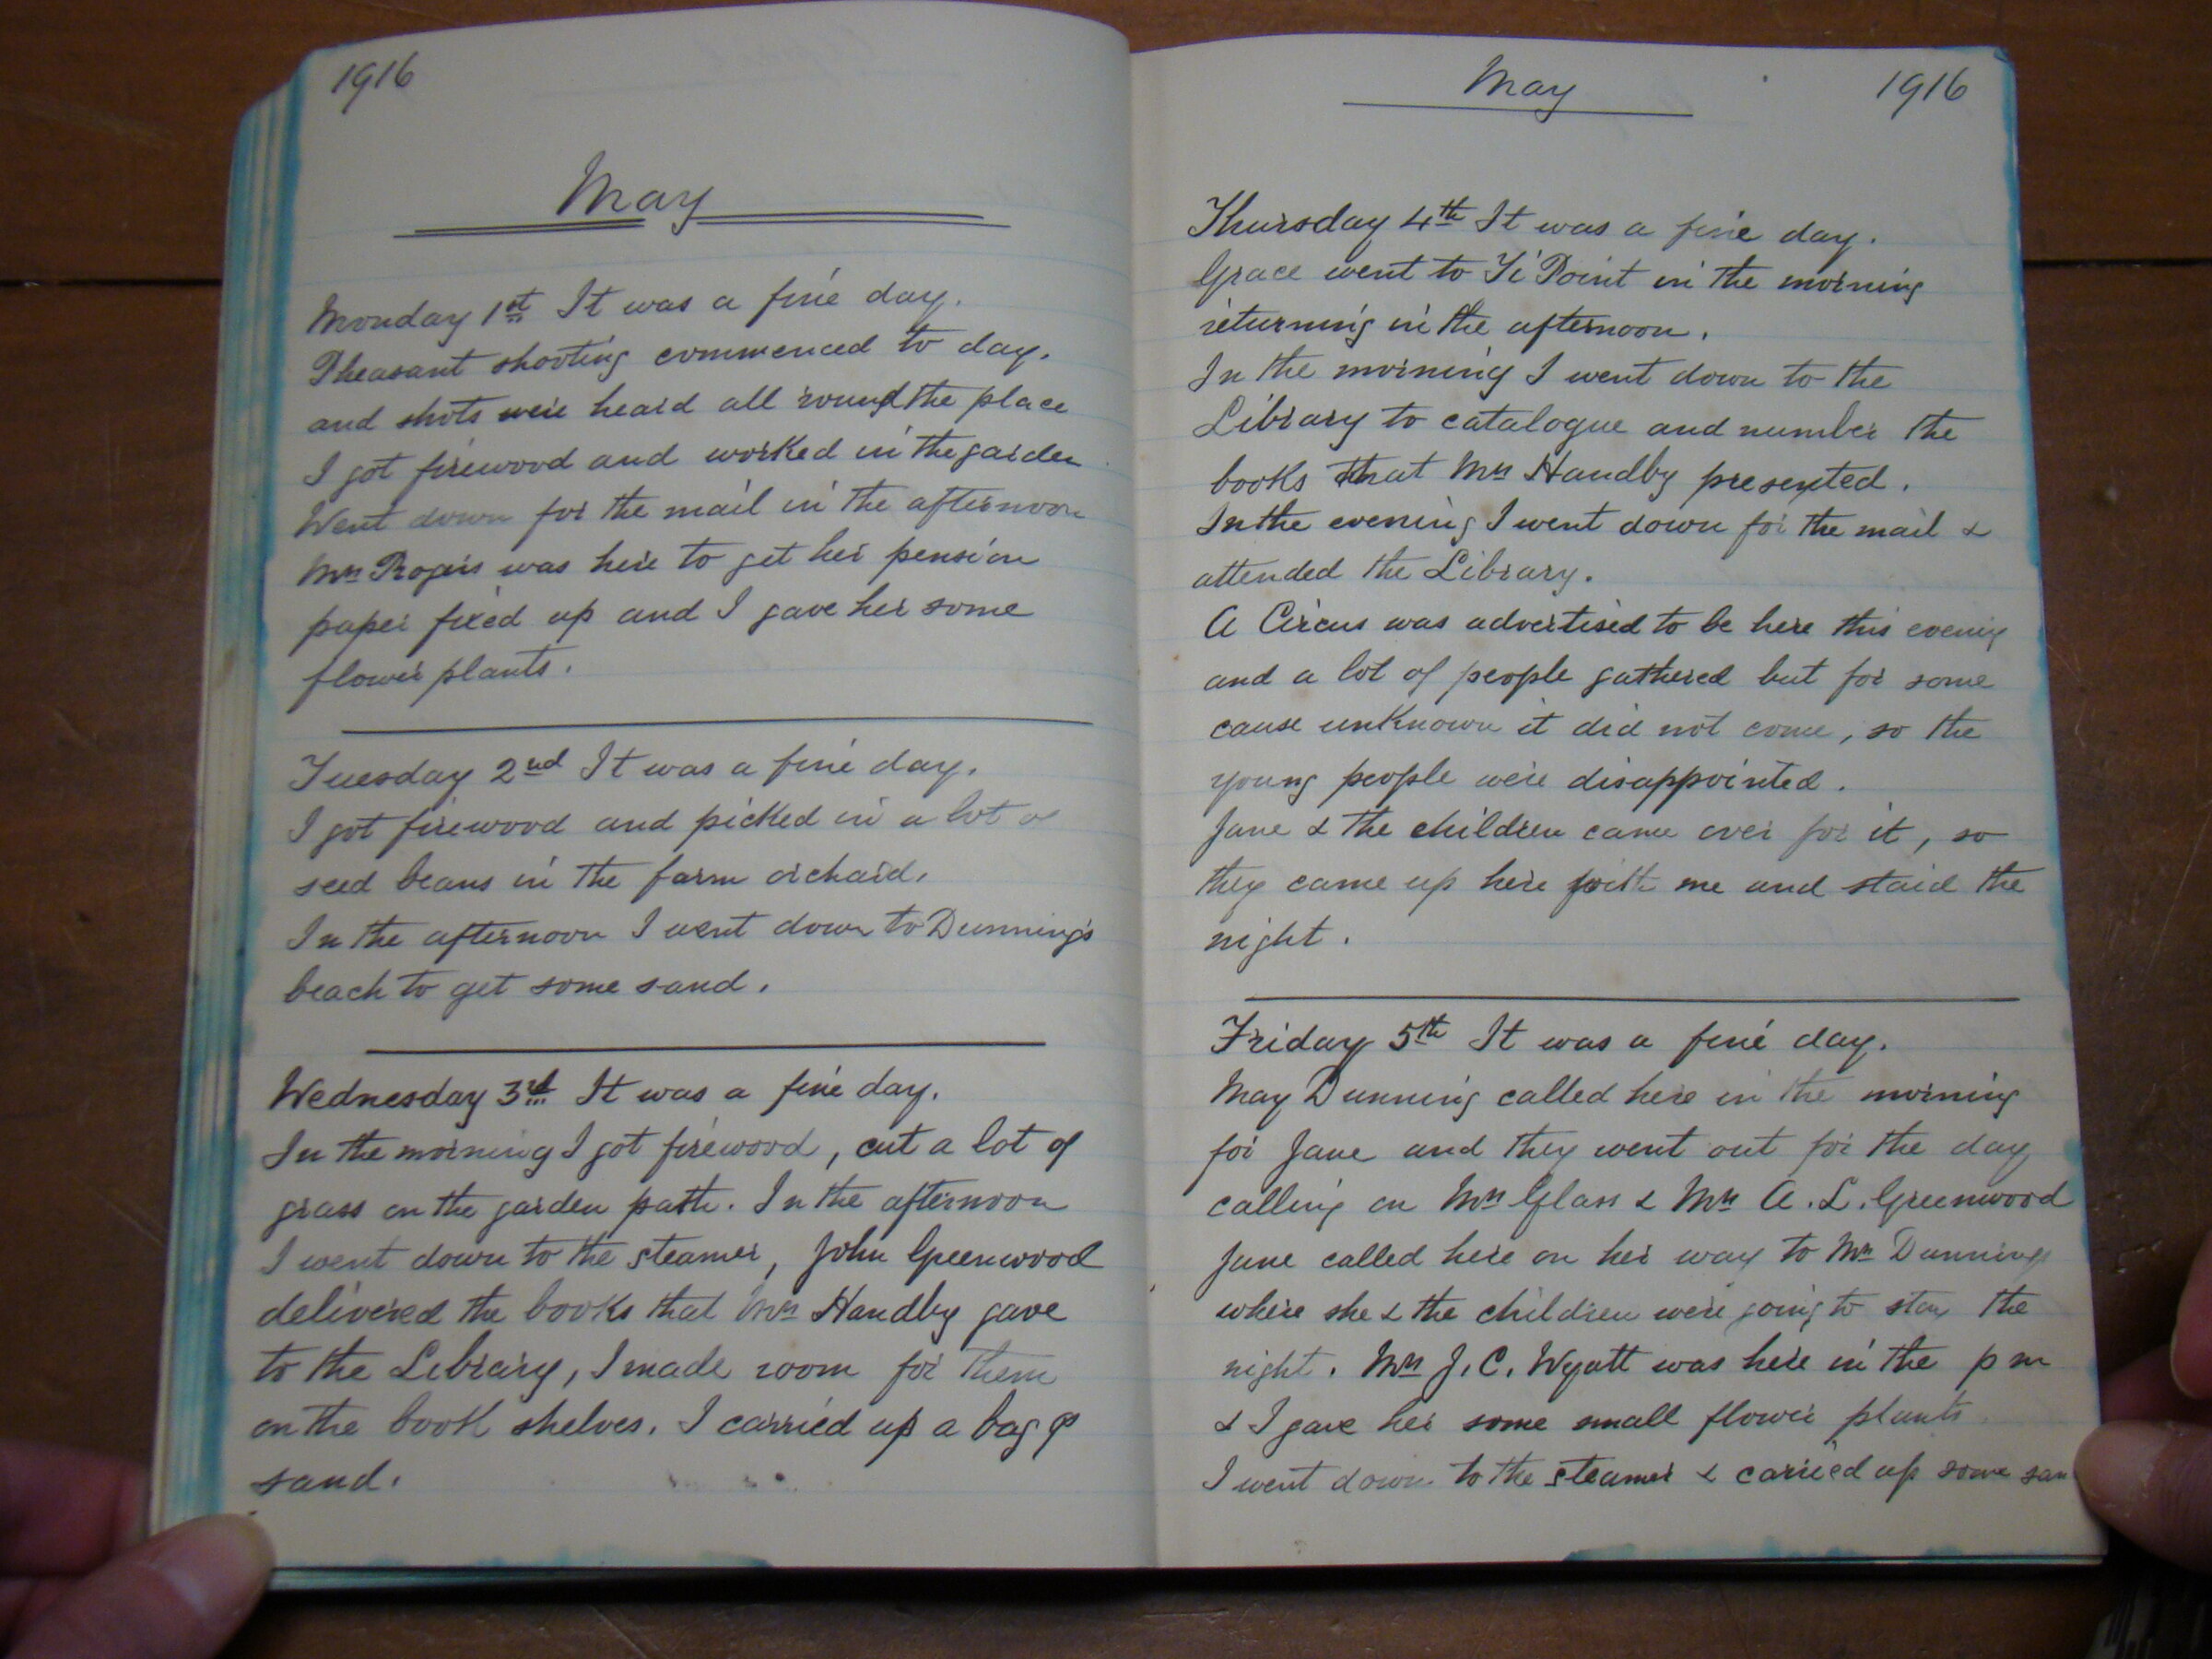 1916
May
Monday 1st It was a fine day.
Pheasant shooting commenced to day.
and shots were heard all round the place
I got firewood and worked in the garden
Went down for the mail in the afternoon
Mrs Rogers was here to get her pension
paper fixed up and I gave her some
flower plants.
Tuesday 2nd It was a fine day.
I got firewood and picked in a lot of
seed beans in the farm orchard.
In the afternoon I went down to Dunning's
beach to get some sand.
Wednesday 3rd It was a fine day.
In the morning I got firewood, cut a lot of
grass on the garden path. In the afternoon
I went down to the steamer, John Greenwood
delivered the books that Mrs Handby gave
to the Library, I made room for them
on the book shelves. I carried up a bag of
sand.
May 1916
Thursday 4th It was a fine day.
Grace went to Ti Point in the morning
returning in the afternoon.
In the morning I went down to the
Library to catalogue and number the
books that Mrs Handby presented.
In the evening I went down for the mail &
attended the Library.
A Circus was advertised to be here this evening
and a lot of people gathered but for some
cause unknown it did not come, so the
young people were disappointed.
Jane & the children came over for it, so
they came up here with me and staid the
night.
Friday 5th It was a fine day.
May Dunning called here in the morning
for Jane and they went out for the day
calling on Mrs Glass & Mrs A. L. Greenwood
Jane called here on her way to Mrs Dunnings
where she & the children were going to stay the
night. Mrs J. C. Wyatt was here in the p m
& I gave her some small flower plants.
I went down to the steamer & carried up some san